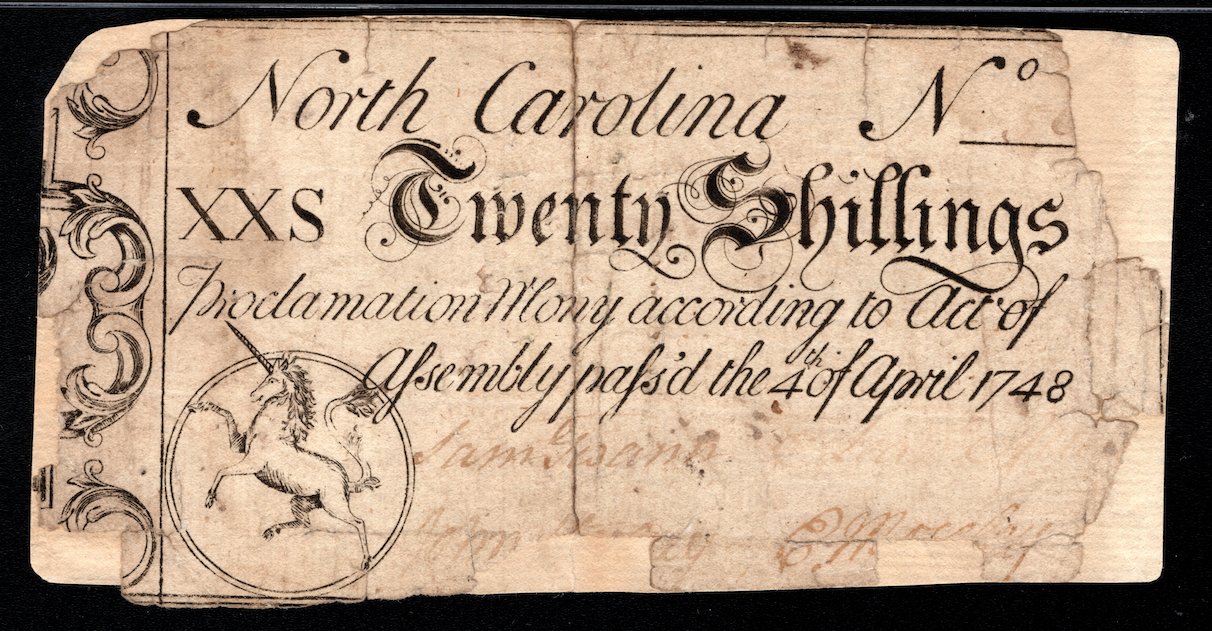 North Carolina N.º
XXS Twenty Shillings
Proclamation Mony according to Act of
Aſsembly paſs'd the 4th of April 1748
Sam
John